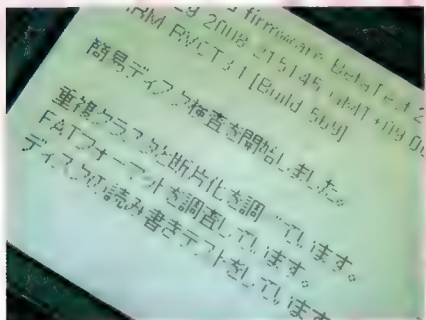 firmware BetaTest 2
2008 21:51:45 GMT+09:0
ARM RVCT3.1 [Build 569]
簡易ディスク検査を開始しました。
重複クラスタと断片化を調べています。
FATフォーマットを調査しています。
ディスクの読み書きテストをしています